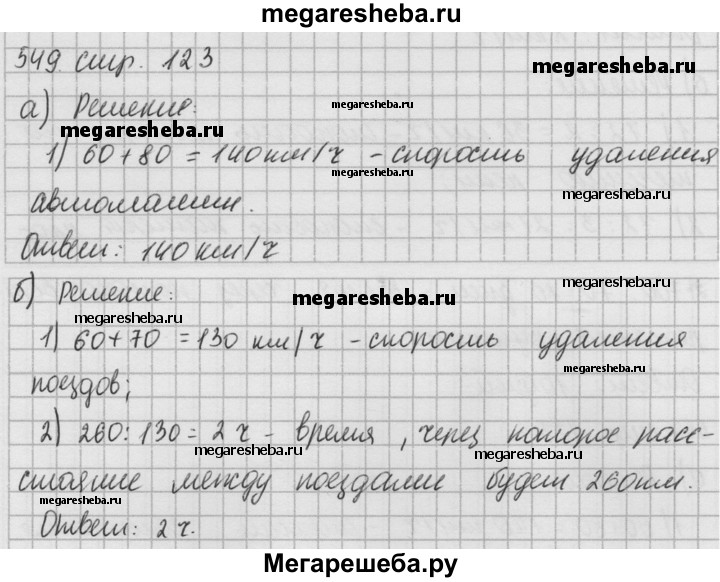 megaresheba.ru
549. стр. 123
megaresheba.ru
а) Решение:
megaresheba.ru
megaresheba.ru
1) 60+80 = 140 км/ч - скорость удаления
megaresheba.ru
megaresheba.ru
автомашин.
Ответ: 140 км/ч
б) Решение:
megaresheba.ru
megaresheba.ru
megaresheba.ru
1) 60+70 = 130 км/ч - скорость удаления
megaresheba.ru
поездов;
2) 260:130 = 2 ч - время, через которое расс-
megaresheba.ru
megaresheba.ru
стояние между поездами будет 260 км.
megaresheba.ru
Ответ: 2 ч.
Мегарешеба.ру